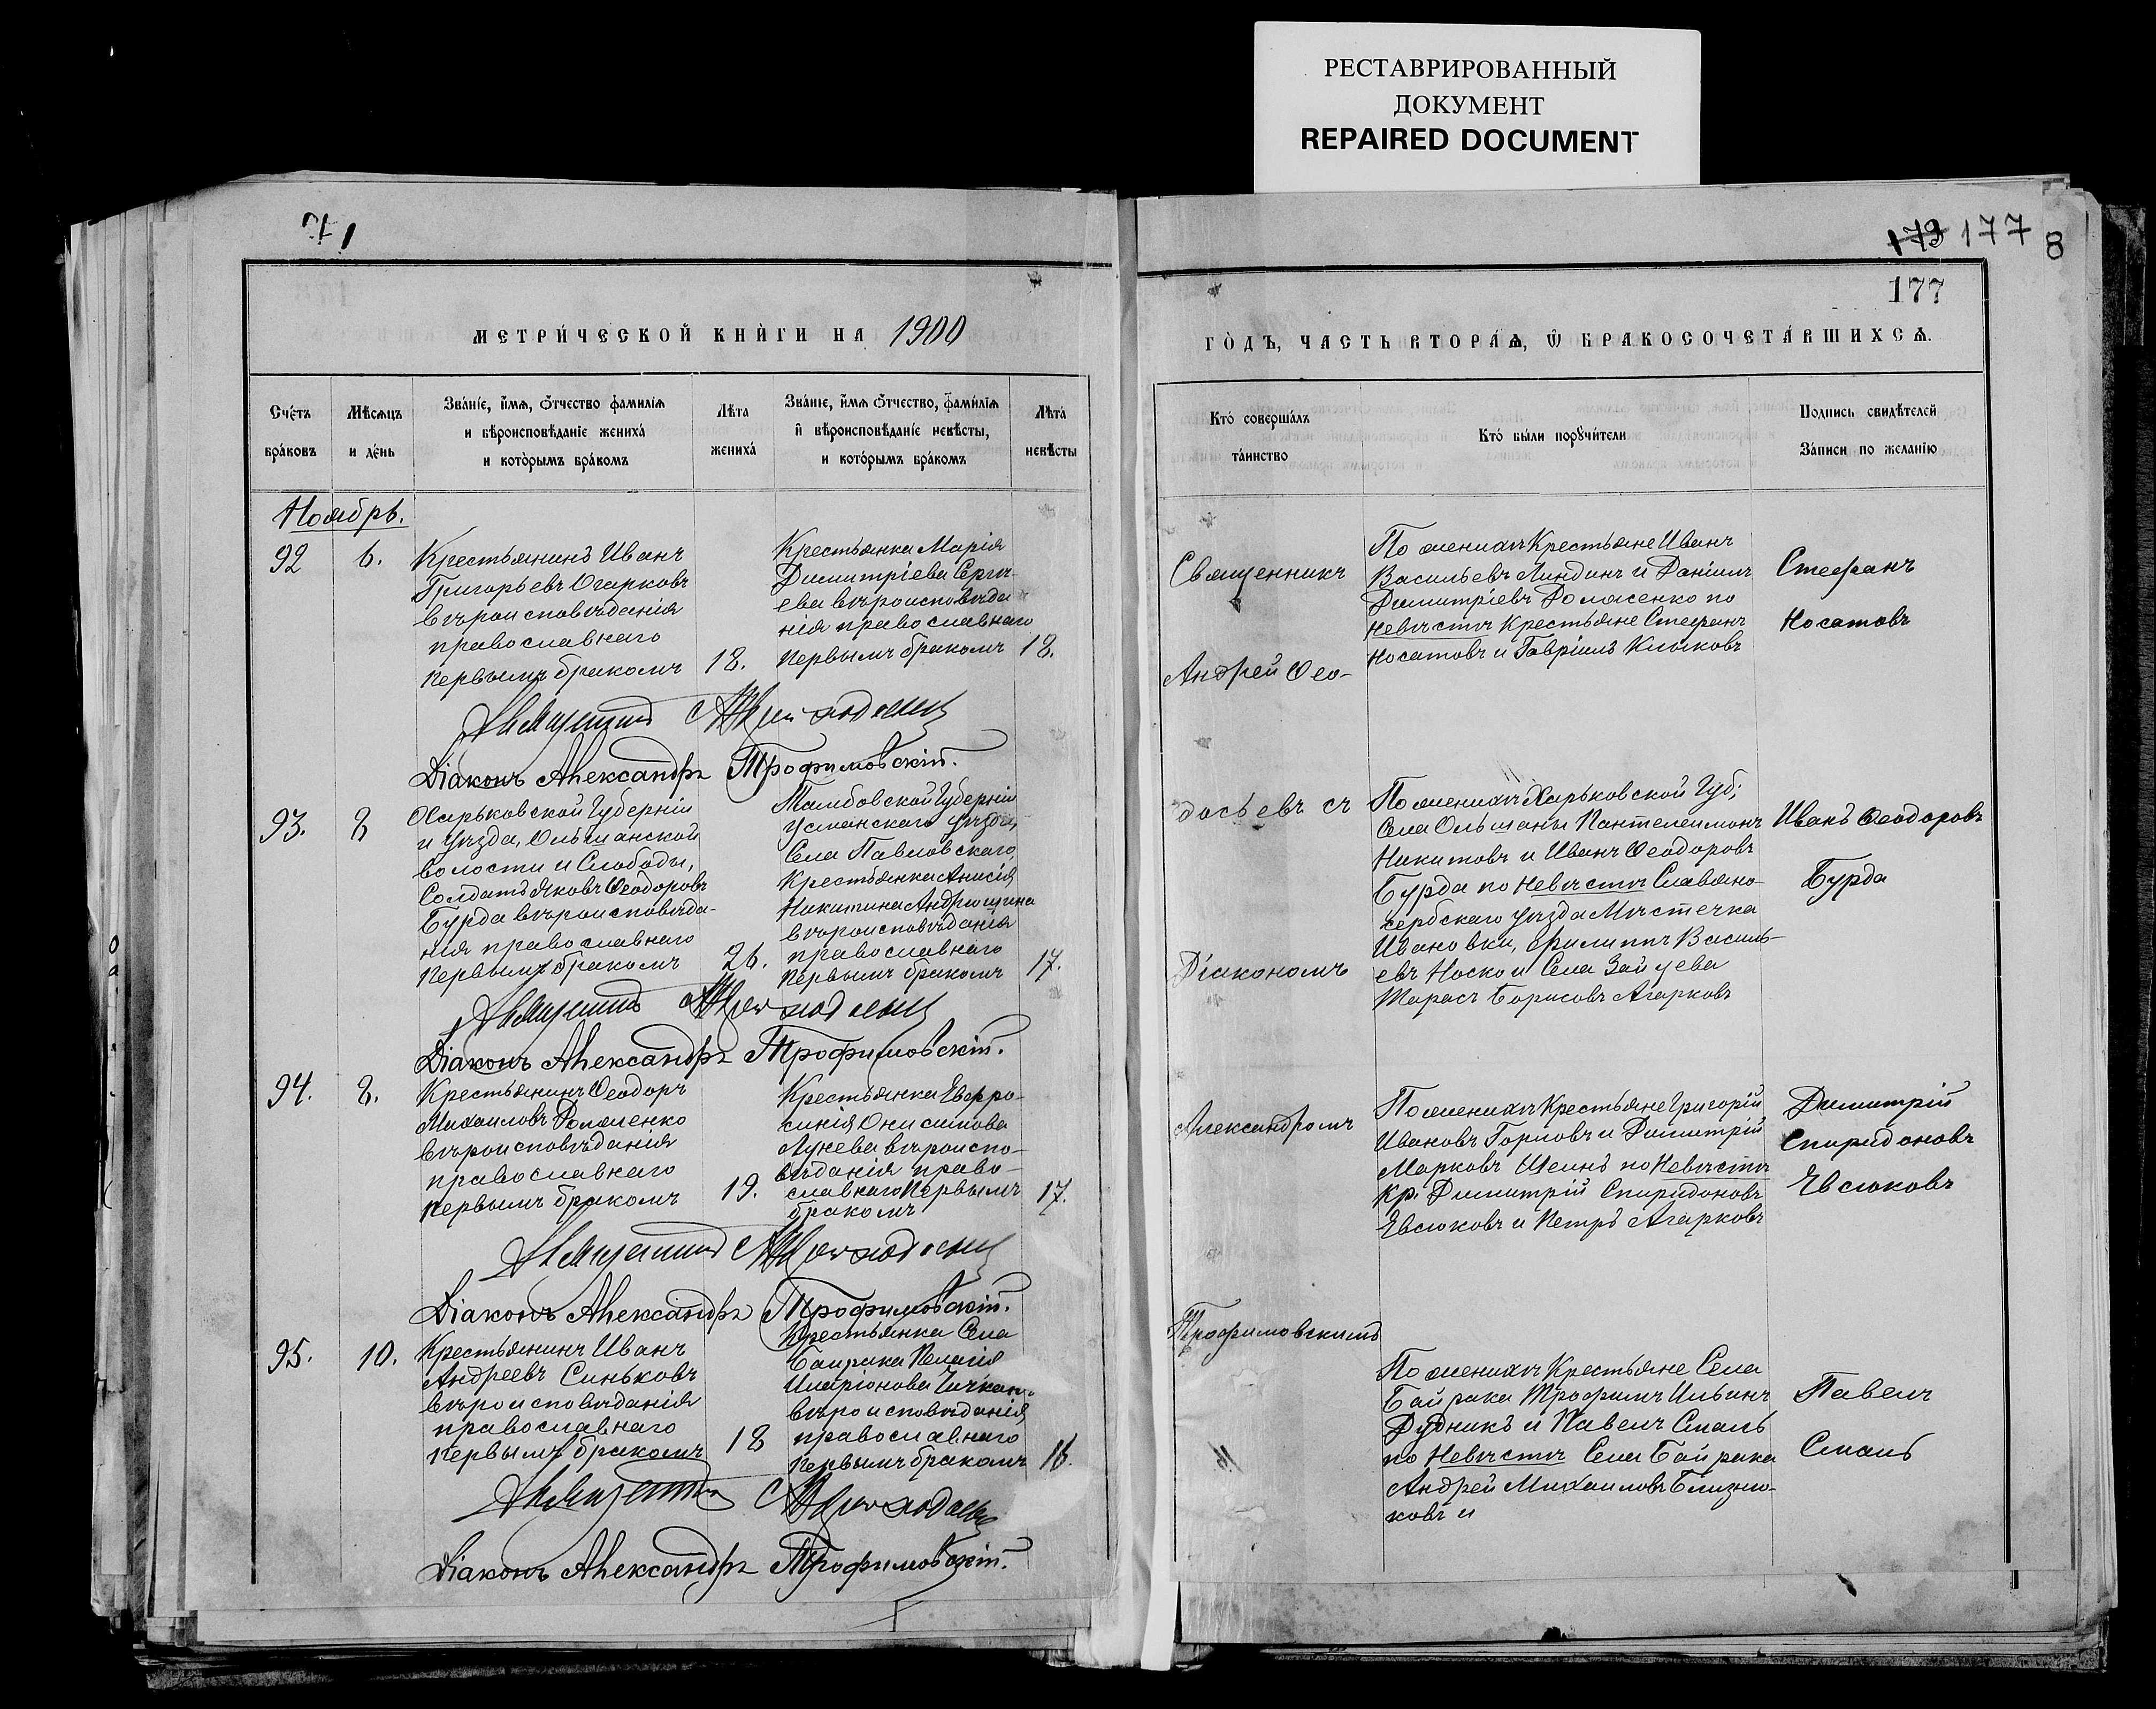 РЕСТАВРИРОВАННЫЙ
ДОКУМЕНТ
REPAIRED DOCUMENT
173 177 8
177
МЕТРИ́ЧЕСКОЙ КНИ́ГИ НА 1900
ГО́ДЪ, ЧАСТЬ ВТОРА́Ѧ, Ѿ БРАКОСОЧЕТА́ВШИХСѦ.
Сче́тъ
бра́ковъ
Мѣ́сѧцъ
и де́нь
Зва́нїе, и́мѧ, ѻ́тчество фамилїѧ
и вѣроисповѣ́данїе жениха́
и кото́рымъ бра́комъ
Лѣ́та
жениха́
Зва́нїе, и́мѧ ѻ́тчество, фами́лїѧ
и҆ вѣроисповѣ́данїе невѣ́сты,
и кото́рымъ бра́комъ
Лѣта́
невѣ́сты
Кто́ соверша́лъ
та́инство
Кто́ бы́ли порꙋчи́тели
Подпись свидѣ́телей
За́писи по жела́нїю
Ноябрь.
92
6.
Крестьянинъ Иванъ
Григорьевъ Огарковъ
вѣроисповѣданія
православнаго
первымъ бракомъ
18.
Крестьянка Марія
Димитріева Серги-
ева вѣроисповѣда
нія православнаго
первымъ бракомъ
18.
Священникъ
Андрей Ѳео-
По женихѣ Крестьяне Иванъ
Васильевъ Линдинъ и Даніилъ
Димитріевъ Домженко по
Невѣстѣ Крестьяне Стефанъ
Носатовъ и Гавріилъ Клыковъ
Стефанъ
Носатовъ
Діаконъ Александръ Трофимовскій.
93.
8
Харьковской Губерніи
и уѣзда, Ольшанской
волости и Слободы,
Солдатъ Яковъ Ѳеодоровъ
Бурда вѣроисповѣда-
нія православнаго
первымъ бракомъ
26.
Тамбовской Губерніи
Усманскаго уѣзда,
Села Павловскаго,
Крестьянка Анисія
Никитина Андрющина
вѣроисповѣданія
православнаго
первымъ бракомъ
17.
досьевъ съ
Діакономъ
По женихѣ Харьковской Губ;
Села Ольшаны Пантелеимонъ
Никитовъ и Иванъ Ѳеодоровъ
Бурда по Невѣстѣ Славяно-
сербскаго уѣзда Мѣстечка
Ивановки, Филиппъ Василь-
евъ Носко и Села Зайцева
Тарасъ Борисовъ Агарковъ
Иванъ Ѳеодоровъ
Бурда
Діаконъ Александръ Трофимовскій.
94.
8.
Крестьянинъ Ѳеодоръ
Михаиловъ Домженко
вѣроисповѣданія
православнаго
первымъ бракомъ
19.
Крестьянка Евфро-
синія Онисимова
Лунева вѣроиспо-
вѣданія право-
славнаго Первымъ
бракомъ
17.
Александромъ
По женихѣ Крестьяне Григорій
Ивановъ Горловъ и Димитрій
Марковъ Шеинъ по Невѣстѣ
Кр. Димитрій Спиридоновъ
Евсюковъ и Петръ Агарковъ
Димитрій
Спиридоновъ
Евсюковъ
Діаконъ Александръ Трофимовскій.
95.
10.
Крестьянинъ Иванъ
Андреевъ Синьковъ
вѣроисповѣданія
православнаго
первымъ бракомъ
18
Крестьянка Села
Байрака Пелагія
Иларіонова
вѣроисповѣданія
православнаго
первымъ бракомъ
16.
Трофимовскимъ
По женихѣ Крестьяне Села
Байрака Трофимъ Ильинъ
Дудникъ и Павелъ Сталь
по Невѣстѣ Села Байрака
Андрей Михаиловъ Близню-
ковъ и
Павелъ
Сталь
Діаконъ Александръ Трофимовскій.